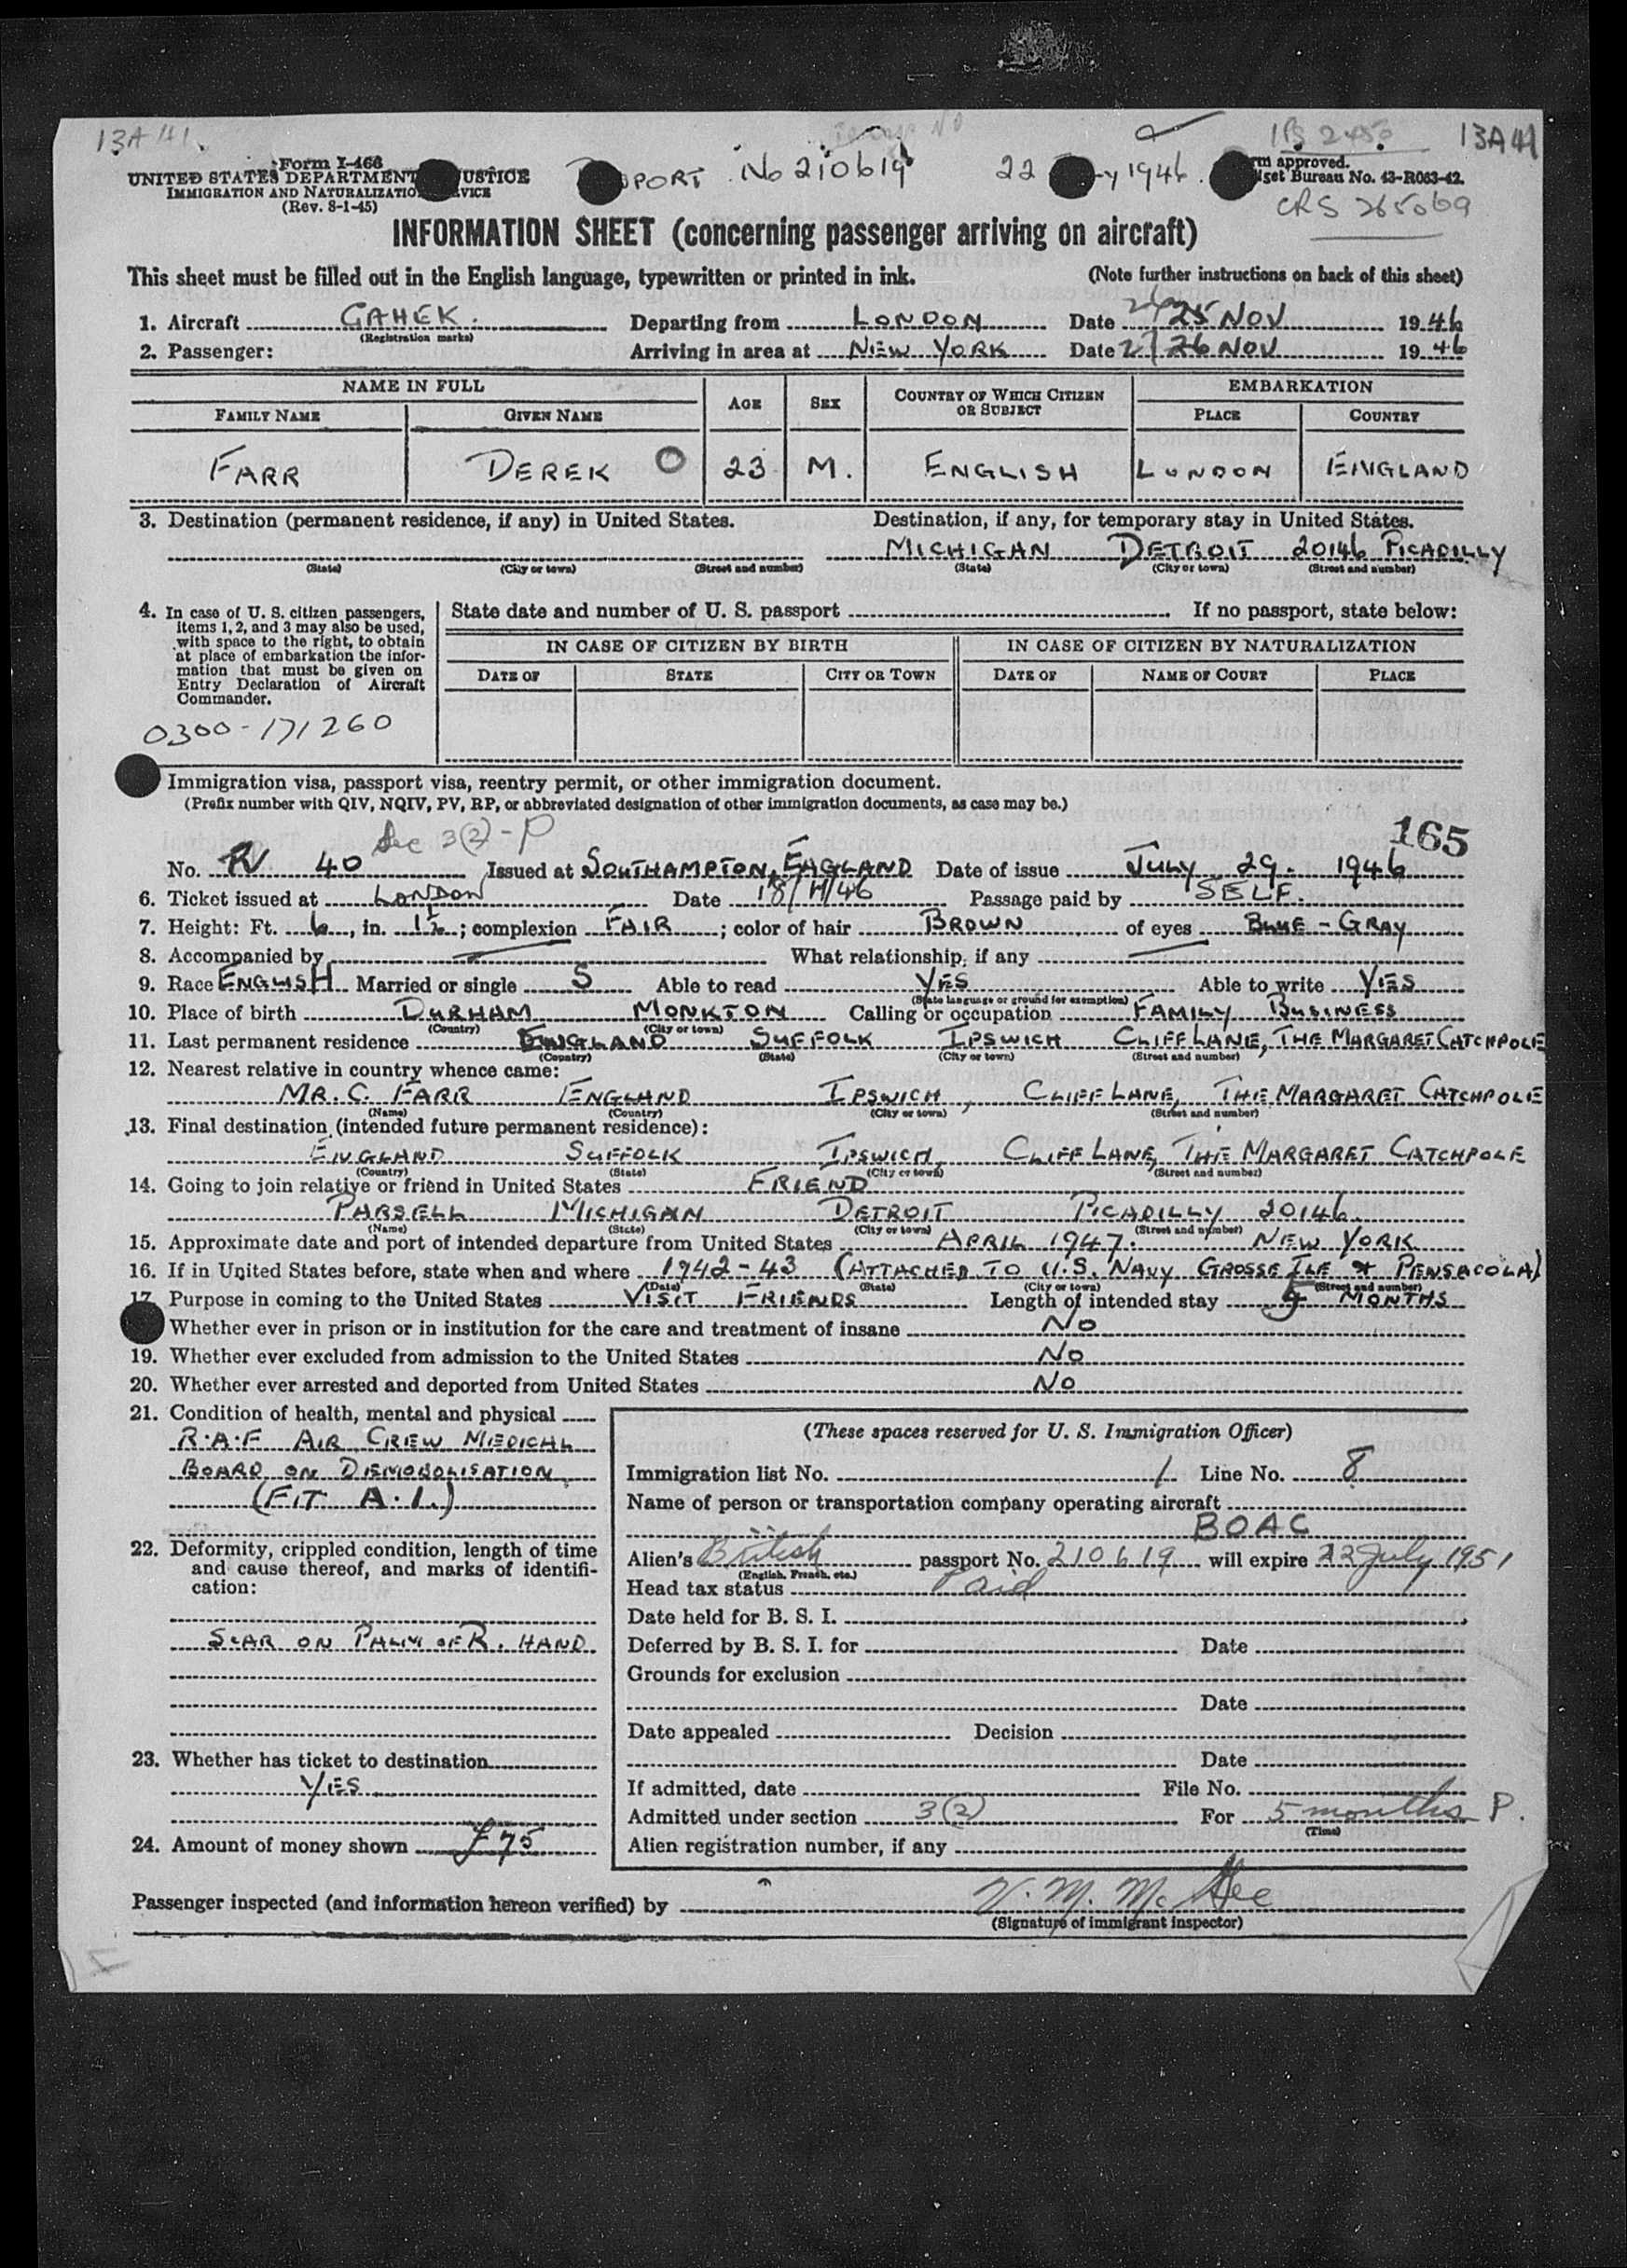 13A 41. 13A41
Form I-466
UNITED STATES DEPARTMENT JUSTICE
IMMIGRATION AND NATURALIZATION SERVICE
(Rev. 8-1-45)
PORT No 210619 22 y 1946.
rm approved.
dget Bureau No. 43-R063-42.
CRS 265069
INFORMATION SHEET (concerning passenger arriving on aircraft)
This sheet must be filled out in the English language, typewritten or printed in ink. (Note further instructions on back of this sheet)
1. Aircraft GAHEK. Departing from LONDON Date 26 25 NOV 1946
(Registration marks)
2. Passenger: Arriving in area at NEW YORK Date 27 26 NOV 1946
NAME IN FULL AGE SEX COUNTRY OF WHICH CITIZEN OR SUBJECT EMBARKATION
FAMILY NAME GIVEN NAME PLACE COUNTRY
FARR DEREK O 23 M. ENGLISH LONDON ENGLAND
3. Destination (permanent residence, if any) in United States. Destination, if any, for temporary stay in United States.
MICHIGAN DETROIT 20146 PICADILLY
(State) (City or town) (Street and number) (State) (City or town) (Street and number)
4. In case of U. S. citizen passengers, items 1, 2, and 3 may also be used, with space to the right, to obtain at place of embarkation the information that must be given on Entry Declaration of Aircraft Commander.
State date and number of U. S. passport If no passport, state below:
IN CASE OF CITIZEN BY BIRTH IN CASE OF CITIZEN BY NATURALIZATION
DATE OF STATE CITY OR TOWN DATE OF NAME OF COURT PLACE
0300-171260
Immigration visa, passport visa, reentry permit, or other immigration document.
(Prefix number with QIV, NQIV, PV, RP, or abbreviated designation of other immigration documents, as case may be.)
165
Sec 3(2)-P
No. PV 40 Issued at SOUTHAMPTON, ENGLAND Date of issue JULY 29. 1946
6. Ticket issued at LONDON Date 18/11/46 Passage paid by SELF.
7. Height: Ft. 6, in. 1½; complexion FAIR; color of hair BROWN of eyes BLUE-GRAY
8. Accompanied by What relationship, if any
9. Race ENGLISH Married or single S Able to read YES Able to write YES
(State language or ground for exemption)
10. Place of birth DURHAM MONKTON Calling or occupation FAMILY BUSINESS
(Country) (City or town)
11. Last permanent residence ENGLAND SUFFOLK IPSWICH CLIFF LANE, THE MARGARET CATCHPOLE
(Country) (State) (City or town) (Street and number)
12. Nearest relative in country whence came:
MR. C. FARR ENGLAND IPSWICH, CLIFF LANE, THE MARGARET CATCHPOLE
(Name) (Country) (City or town) (Street and number)
13. Final destination (intended future permanent residence):
ENGLAND SUFFOLK IPSWICH, CLIFF LANE, THE MARGARET CATCHPOLE
(Country) (State) (City or town) (Street and number)
14. Going to join relative or friend in United States FRIEND
PARSELL MICHIGAN DETROIT PICADILLY 20146.
(Name) (State) (City or town) (Street and number)
15. Approximate date and port of intended departure from United States APRIL 1947. NEW YORK
16. If in United States before, state when and where 1942-43 (ATTACHED TO U.S. NAVY GROSSE ILE & PENSACOLA)
(Date) (State) (City or town) (Street and number)
17. Purpose in coming to the United States VISIT FRIENDS Length of intended stay 5 MONTHS
Whether ever in prison or in institution for the care and treatment of insane NO
19. Whether ever excluded from admission to the United States NO
20. Whether ever arrested and deported from United States NO
21. Condition of health, mental and physical
R.A.F AIR CREW MEDICAL
BOARD ON DEMOBOLISATION.
(FIT A.1.)
22. Deformity, crippled condition, length of time and cause thereof, and marks of identification:
SCAR ON PALM OF R. HAND.
23. Whether has ticket to destination
YES
24. Amount of money shown £75
(These spaces reserved for U. S. Immigration Officer)
Immigration list No. 1 Line No. 8
Name of person or transportation company operating aircraft
BOAC
Alien's British passport No. 210619 will expire 22 July 1951
(English, French, etc.)
Head tax status Paid
Date held for B. S. I.
Deferred by B. S. I. for Date
Grounds for exclusion
Date
Date appealed Decision
Date
If admitted, date File No.
Admitted under section 3(2) For 5 months P.
(Time)
Alien registration number, if any
Passenger inspected (and information hereon verified) by V. M. McGee
(Signature of immigrant inspector)